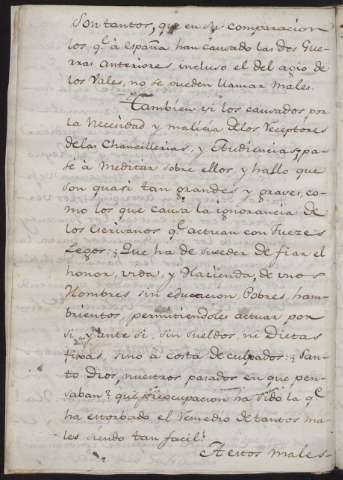 Son tantos, que en su comparacion
los, qe. à España han causado las dos Gue-
rras Anteriores incluso el del agio de
los Vales, no se pueden llamar Males.
Tambien vi los causados por
la Necesidad y malicia de los Receptores
de las Chancillerias, y Audiencias, pa-
sé à Meditar sobre ellos, y hallo que
son quasi tan grandes y graves, co-
mo los que causa la ignorancia de
los Escrivanos qe. actuan con Juezes
Legos: ¿Que ha de suceder de fiar el
honor, vida, y Hazienda, de unos
Hombres sin educacion, Pobres, ham-
brientos, permitiendoles actuar por
si, y ante si, sin sueldos, ni Dietas
fixas, sino à costa de culpados? ¡San-
to Dios, nuestros pasados en que pen-
saban? que preocupacion ha sido la qe.
ha estorbado el remedio de tantos ma-
les siendo tan facil?
A estos Males